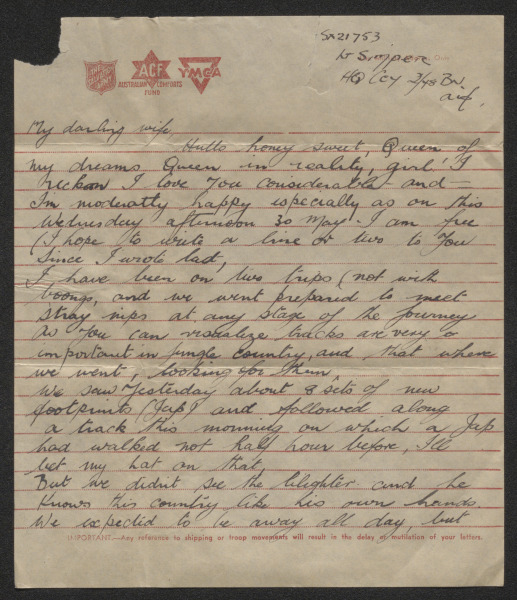 SX21753
Lt Simper
HQ Coy 2/48 BN
aif,
THE SALVATION ARMY
ACF
AUSTRALIAN COMFORTS
FUND
YMCA
My darling wife,
Hullo honey sweet, Queen of
my dreams Queen in reality, girl! I
reckon I love you considerable and —
I'm moderatly happy especially as on this
Wednesday afternoon 30 May. I am free
(I hope to write a line or two to you
Since I wrote last,
I have been on two trips (not with
boongs, and we went prepared to meet
stray nips at any stage of the journey
As you can visualize tracks are very
important in jungle country, and that where
we went, looking for them
We saw yesterday about 8 sets of new
footprints (Jap) and followed along
a track this morning on which a Jap
had walked not half hour before, I'll
bet my hat on that,
But we didn't see the blighter and he
knows this country like his own hands.
We expected to be away all day, but
IMPORTANT.—Any reference to shipping or troop movements will result in the delay or mutilation of your letters.